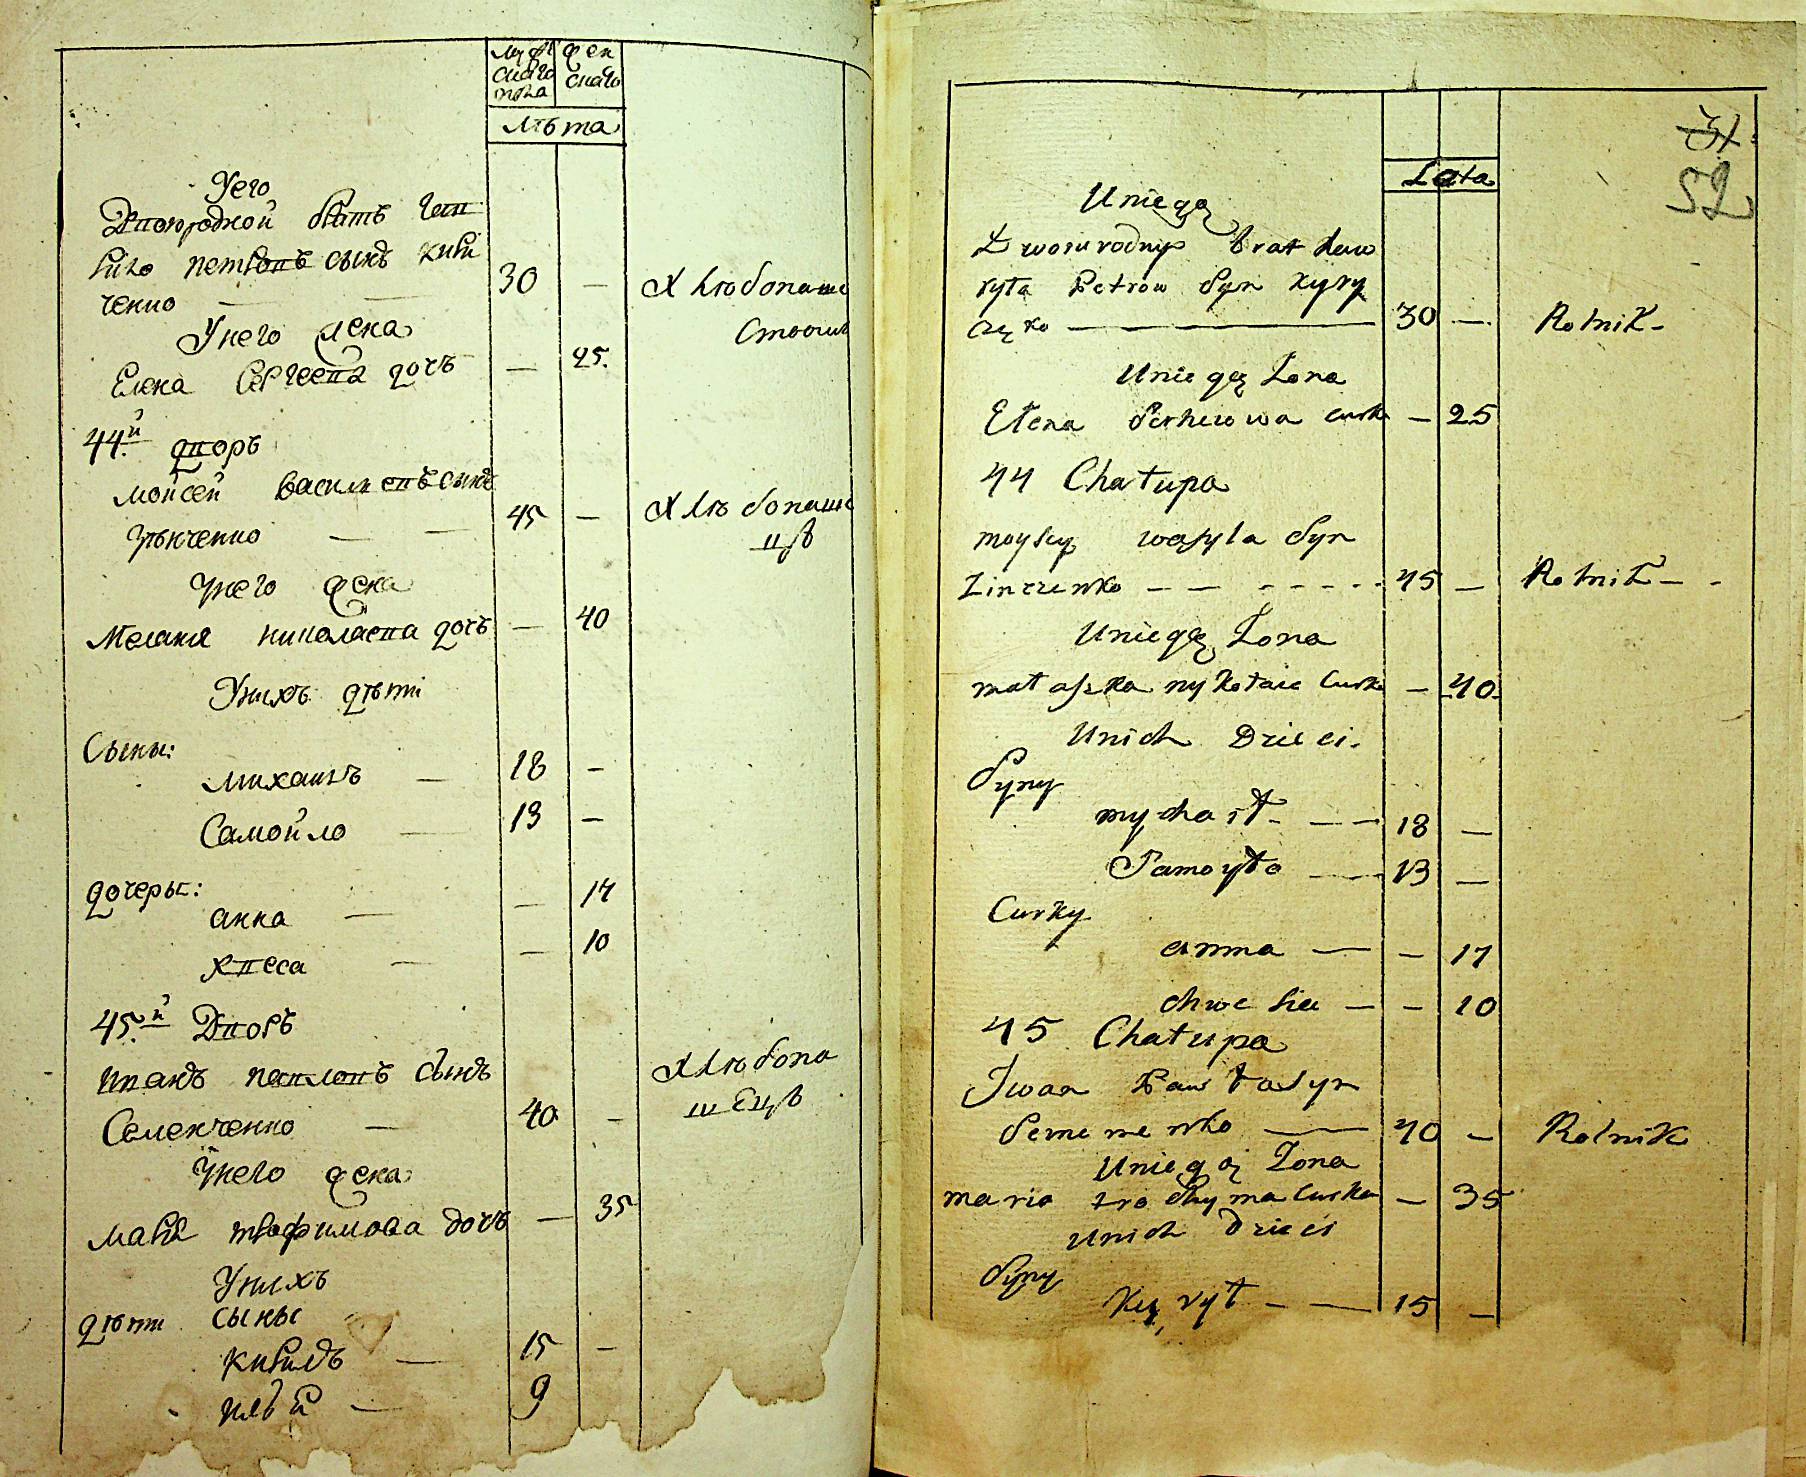 мужескаго пола
женскаго
лѣта
У его
Двоюродной братъ Гав
рило петровъ сынъ кири
ченко — — 30 — Хлѣбопаше
ствомъ
У него жена
Елена Сергеева дочь — 25.
44.й дворъ
мойсей василевъ сынъ
Зѣнченко — — 45 — Хлѣбопаше
цъ
Унего жена
Меланя николаева дочь — 40
Унихъ дѣти
Сыны:
михаилъ — 18 —
Самойло — 13 —
дочеры:
анна — — 17
хвеса — — 10
45.й Дворъ
иванъ павловъ сынъ Хлѣбопа
Семенченко — 40 — шецъ
Унего жена
мария трофимова дочь — 35
Унихъ
дѣти сыны
кирилъ — 15 —
илья — 9
Lata
51.
52
Uniegą
Dwoiurodny brat haw
ryła Petrow Syn Kyry
częko — 30 — Rolnik —
Uniegą Zona
Elena Serheiowa curka — 25
44 Chałupa
moysey wasyla Syn
Zinczenko — — - - - - - 45 — Rolnik — -
Uniegą Zona
małaszka nykołaia Curka — 40.
Unich Dzieci.
Syny
mychaił - — — 18 —
Samoyło — — 13 —
Curky
anna — — 17
chwesia — — 10
45 Chałupa
Iwan Pawła Syn
Sememenko — 40 — Rolnik
Uniegoi Zona
maria trochyma Curka — 35
Unich Dzieci
Syny
Kyrył - — 15 —